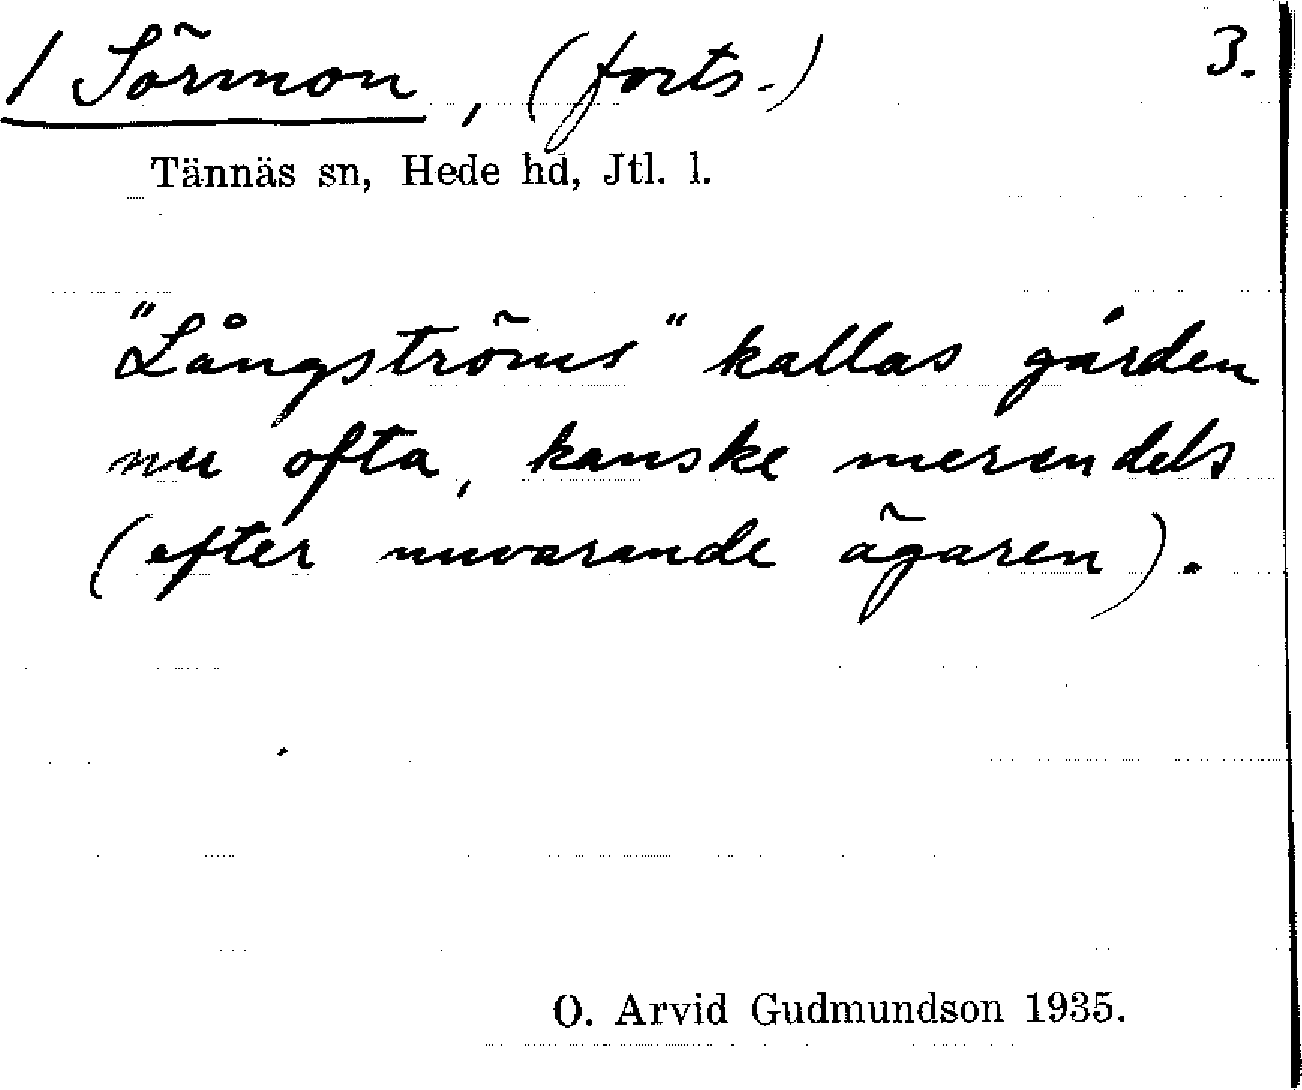 / Sörmon, (forts.) 3.
Tännäs sn, Hede hd, Jtl. l.
"Långströms" kallas gården
nu ofta, kanske merendels
(efter nuvarande ägaren).
O. Arvid Gudmundson 1935.